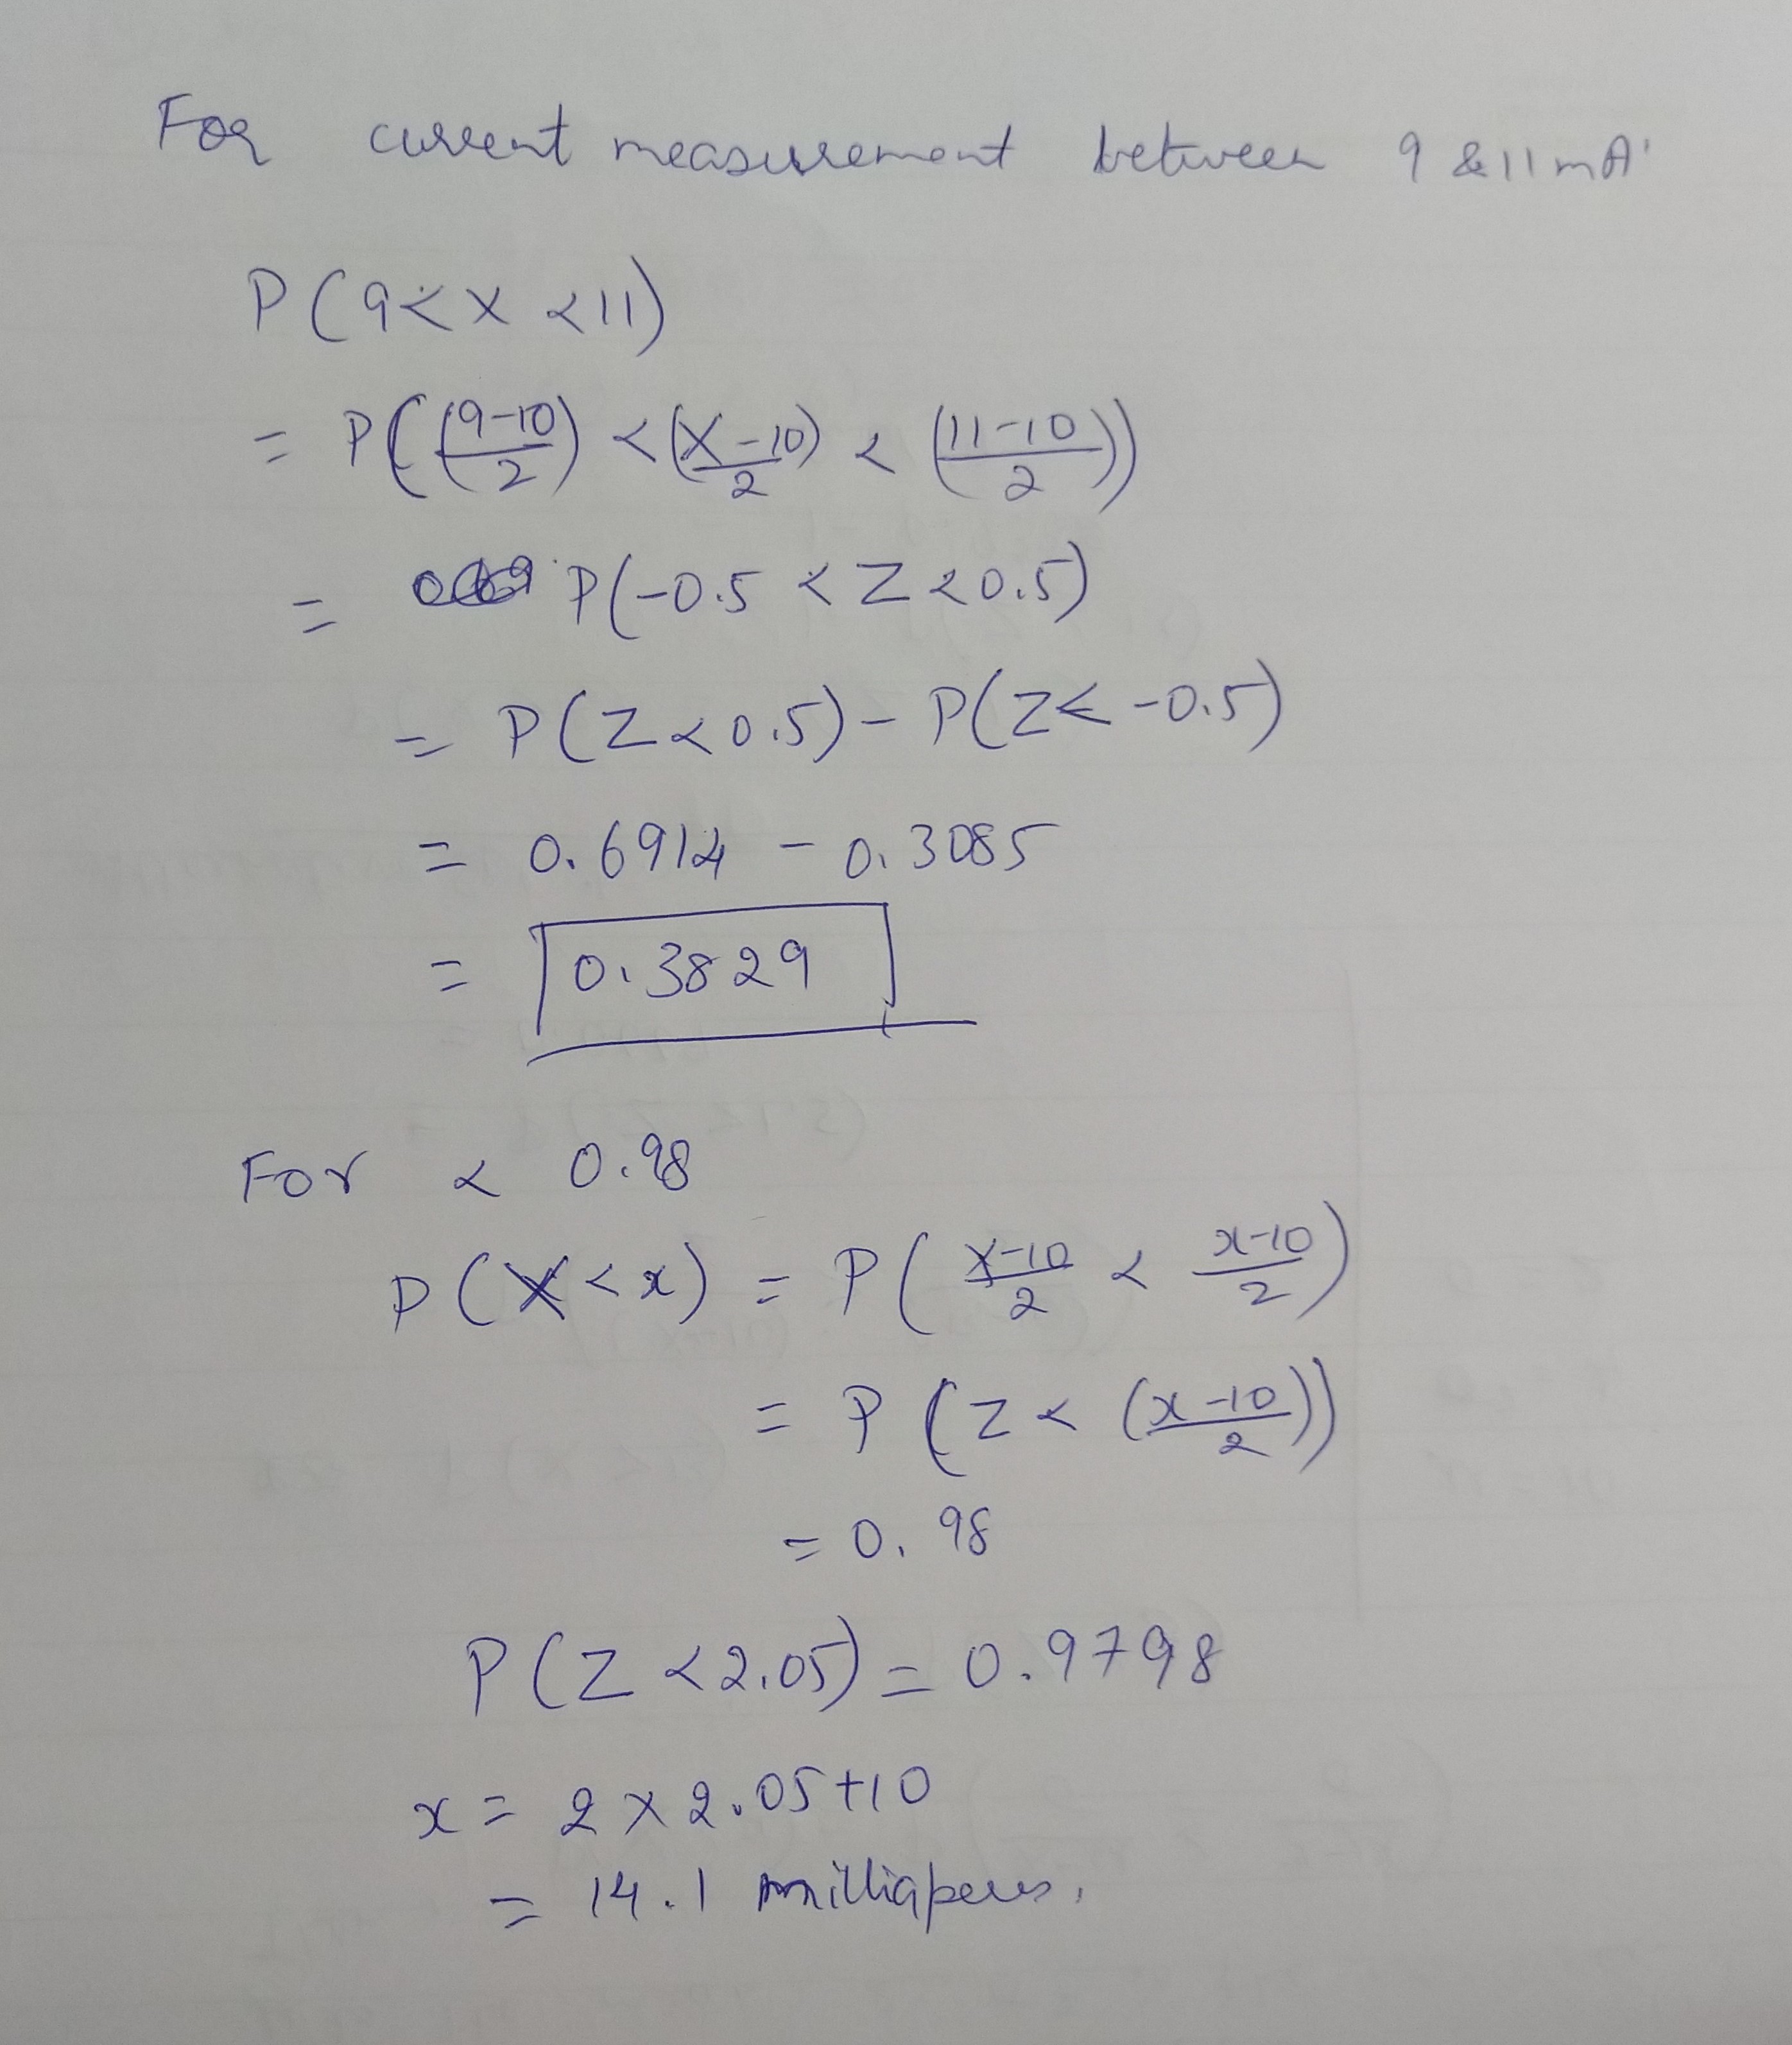 For current measurement between 9 & 11 mA'
P(9 < X < 11)
= P((9-10)/2) < (X-10)/2 < (11-10)/2))
= P(-0.5 < Z < 0.5)
= P(Z < 0.5) - P(Z < -0.5)
= 0.6914 - 0.3085
= 0.3829
For < 0.98
P(X < x) = P(X-10/2 < x-10/2)
= P(Z < (x-10/2))
= 0.98
P(Z < 2.05) = 0.9798
x = 2 × 2.05 + 10
= 14.1 milliaperes.